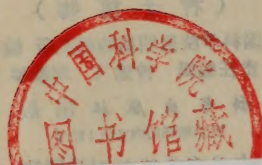 中国科学院
图书馆藏